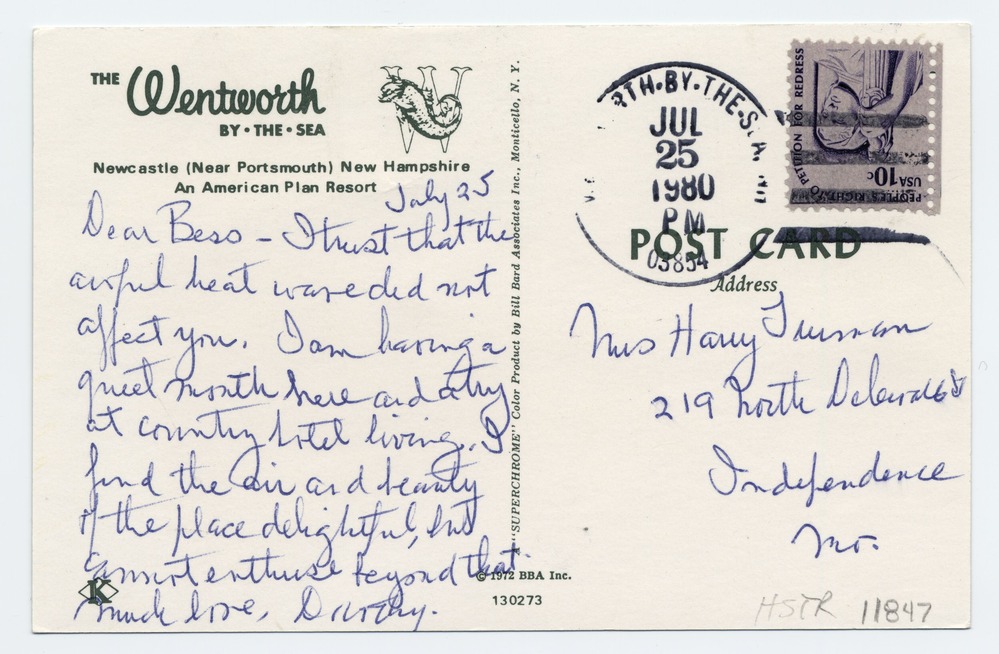 THE Wentworth
BY • THE • SEA
Newcastle (Near Portsmouth) New Hampshire
An American Plan Resort
July 25
Dear Bess - I trust that the
awful heat wave did not
affect you. I am having a
quiet month here and a try
at country hotel living. I
find the air and beauty
of the place delightful, but
cannot enthuse beyond that
much love, Dorothy.
K
"SUPERCHROME" Color Product by Bill Bard Associates Inc., Monticello, N. Y.
© 1972 BBA Inc.
130273
RTH-BY-THE-S
JUL
25
1980
PM
03854
PEOPLE'S RIGHT TO PETITION FOR REDRESS
USA 10c
POST CARD
Address
Mrs Harry Truman
219 North Delaware St
Independence
Mo.
HSTR 11847